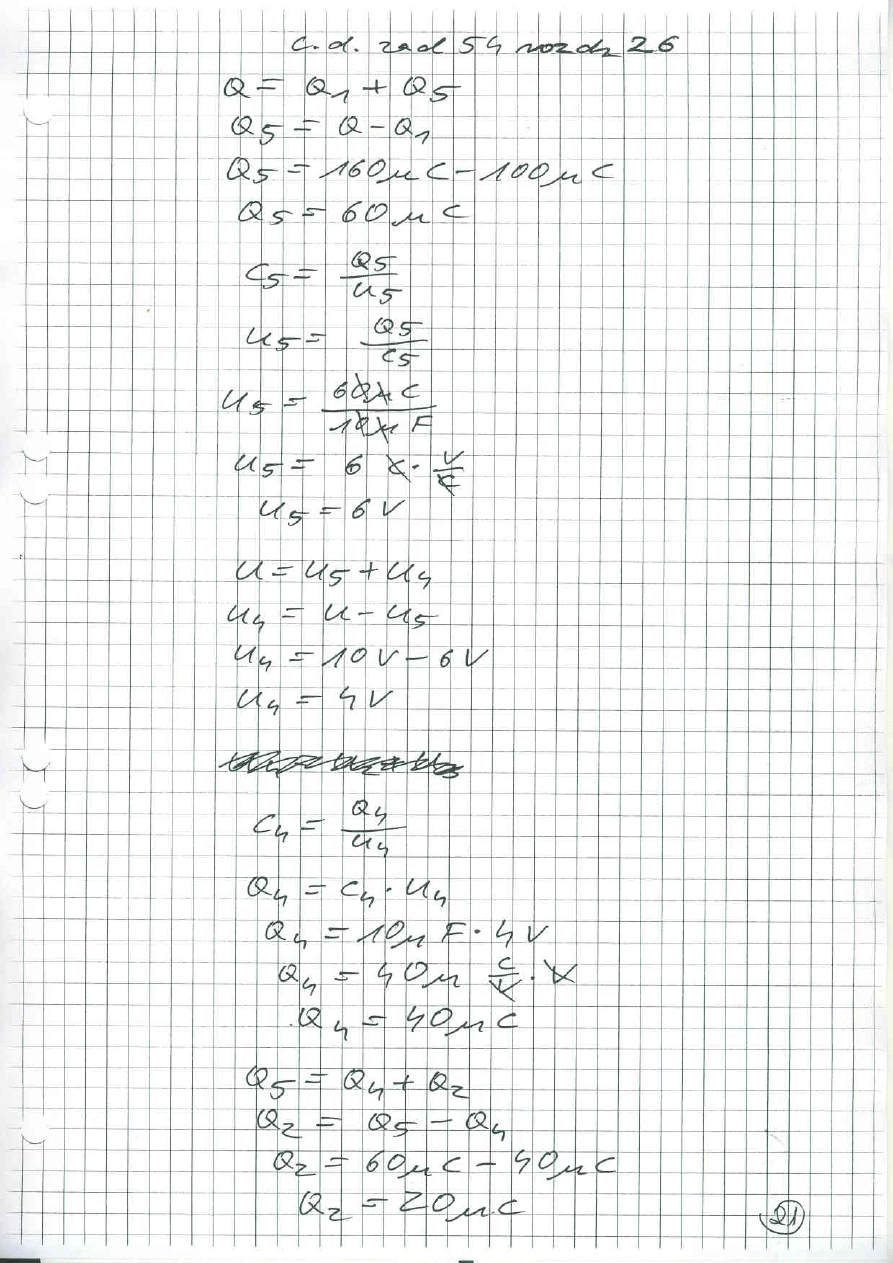 c.d. zad 54 rozdz 26
Q = Q1 + Q5
Q5 = Q - Q1
Q5 = 160μC - 100μC
Q5 = 60μC
C5 = Q5/U5
U5 = Q5/C5
U5 = 60μC/10μF
U5 = 6 C · V/C
U5 = 6V
U = U5 + U4
U4 = U - U5
U4 = 10V - 6V
U4 = 4V
C4 = Q4/U4
Q4 = C4 · U4
Q4 = 10μF · 4V
Q4 = 40μ C/V · V
Q4 = 40μC
Q5 = Q4 + Q2
Q2 = Q5 - Q4
Q2 = 60μC - 40μC
Q2 = 20μC
21